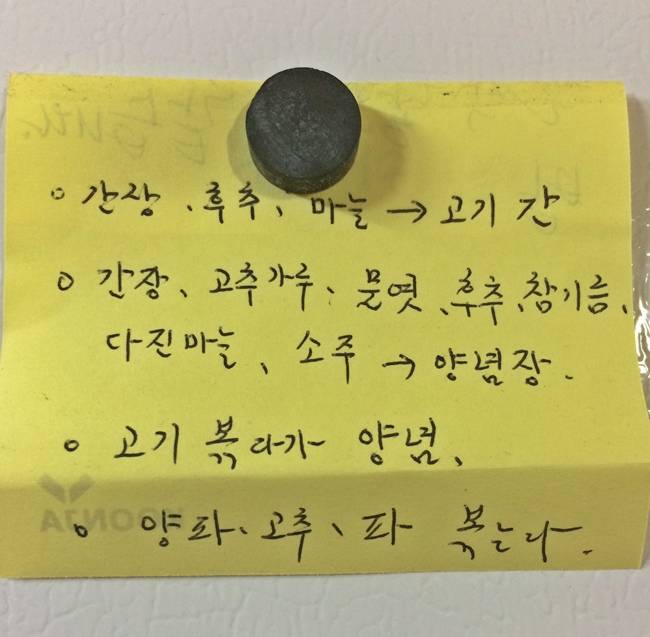 ○ 간장, 후추, 마늘 → 고기 간
○ 간장, 고추가루, 물엿, 후추, 참기름,
다진마늘, 소주 → 양념장.
○ 고기 볶다가 양념,
○ 양파, 고추, 파 볶는다.